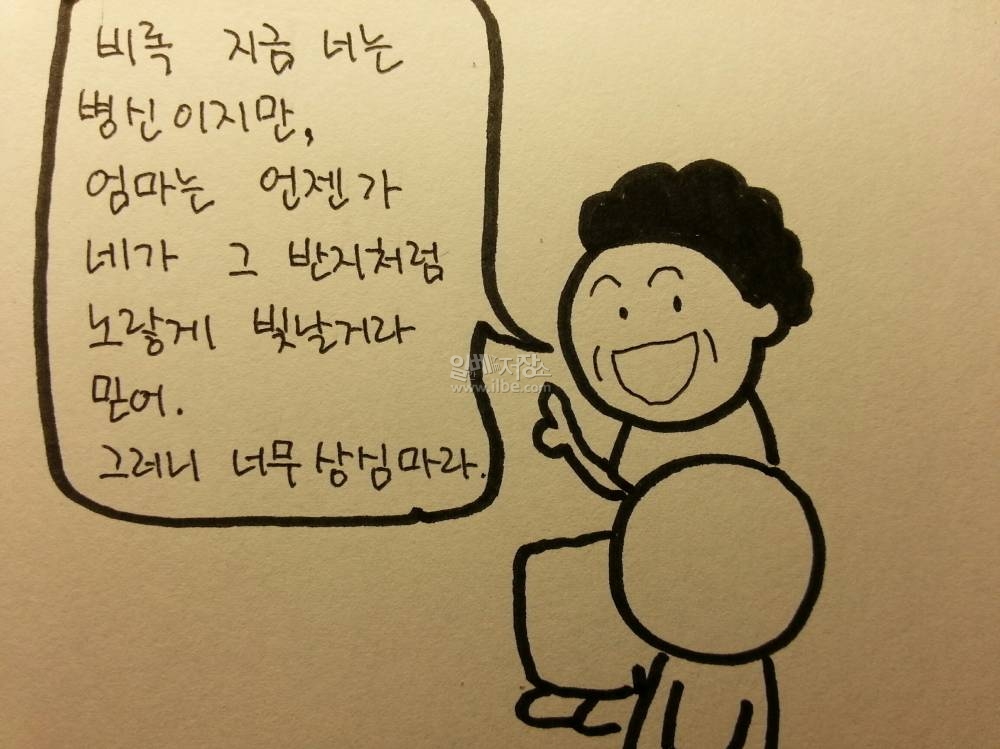 비록 지금 너는
병신이지만,
엄마는 언젠가
네가 그 반지처럼
노랗게 빛날거라
믿어.
그러니 너무상심마라.
일베저장소
www.ilbe.com